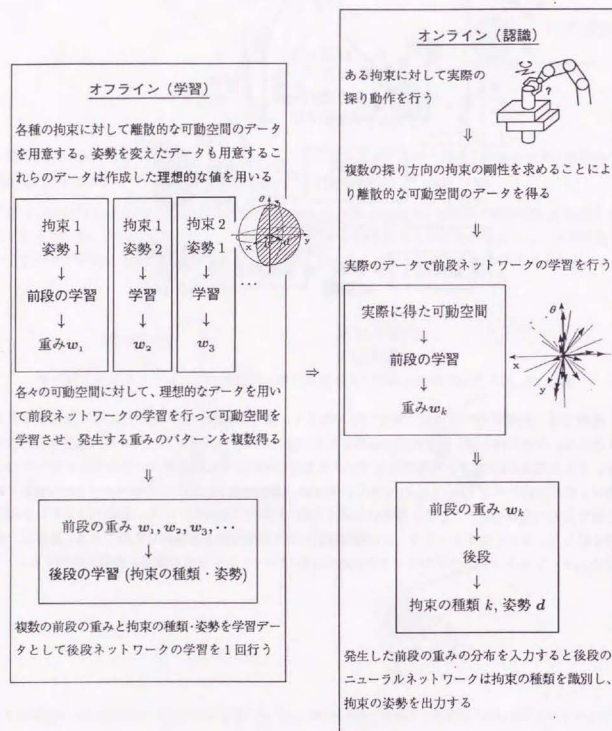 オフライン（学習）
各種の拘束に対して離散的な可動空間のデータ
を用意する。姿勢を変えたデータも用意するこ
れらのデータは作成した理想的な値を用いる
拘束 1
姿勢 1
↓
前段の学習
↓
重みw₁
拘束 1
姿勢 2
↓
学習
↓
w₂
拘束 2
姿勢 1
↓
学習
↓
w₃
θ
x
d
y
…
各々の可動空間に対して、理想的なデータを用い
て前段ネットワークの学習を行って可動空間を
学習させ、発生する重みのパターンを複数得る
⇓
前段の重み w₁, w₂, w₃, …
↓
後段の学習 (拘束の種類・姿勢)
複数の前段の重みと拘束の種類・姿勢を学習デー
タとして後段ネットワークの学習を 1 回行う
⇒
オンライン（認識）
ある拘束に対して実際の
探り動作を行う
?
⇓
複数の探り方向の拘束の剛性を求めることによ
り離散的な可動空間のデータを得る
⇓
実際のデータで前段ネットワークの学習を行う
実際に得た可動空間
↓
前段の学習
↓
重みwₖ
θ
x
y
⇓
前段の重み wₖ
↓
後段
↓
拘束の種類 k, 姿勢 d
発生した前段の重みの分布を入力すると後段の
ニューラルネットワークは拘束の種類を識別し、
拘束の姿勢を出力する